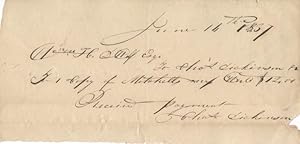 June 16th 1857
H. Esq
To Chas Dickinson
For 1 Copy of Mitchells map $12.00
Received payment
Chas Dickinson